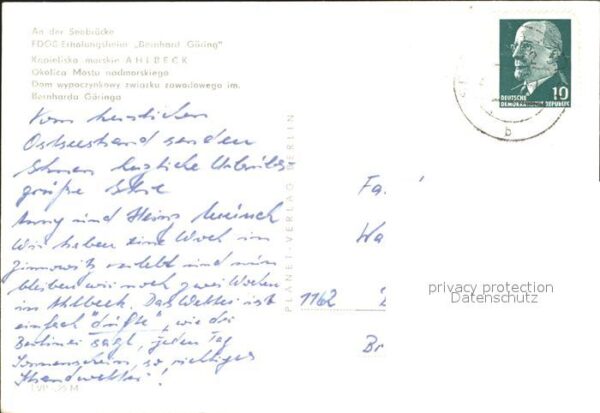 An der Seebrücke
FDGB-Erholungsheim „Bernhard Göring"
Kąpielisko morskie AHLBECK
Okolica Mostu nadmorskiego
Dom wypoczynkowy związku zawodowego im.
Bernharda Göringa
Vom herrlichen
Ostseestrand senden
Ihnen herzliche Urlaubs-
grüße Ihre
Anny und Heinz
Wir haben eine Woch in
Zinnowitz verlebt und nun
bleiben wir noch zwei Wochen
in Ahlbeck. Das Wetter ist
einfach "dufte", wie die
Berliner sagt, jeden Tag
Sonnenschein, so richtiges
Strandwetter!
PLANET-VERLAG BERLIN
DEUTSCHE
DEMOKRATISCHE REPUBLIK
10
b
Fa.
Wa
1162
Br
privacy protection
Datenschutz